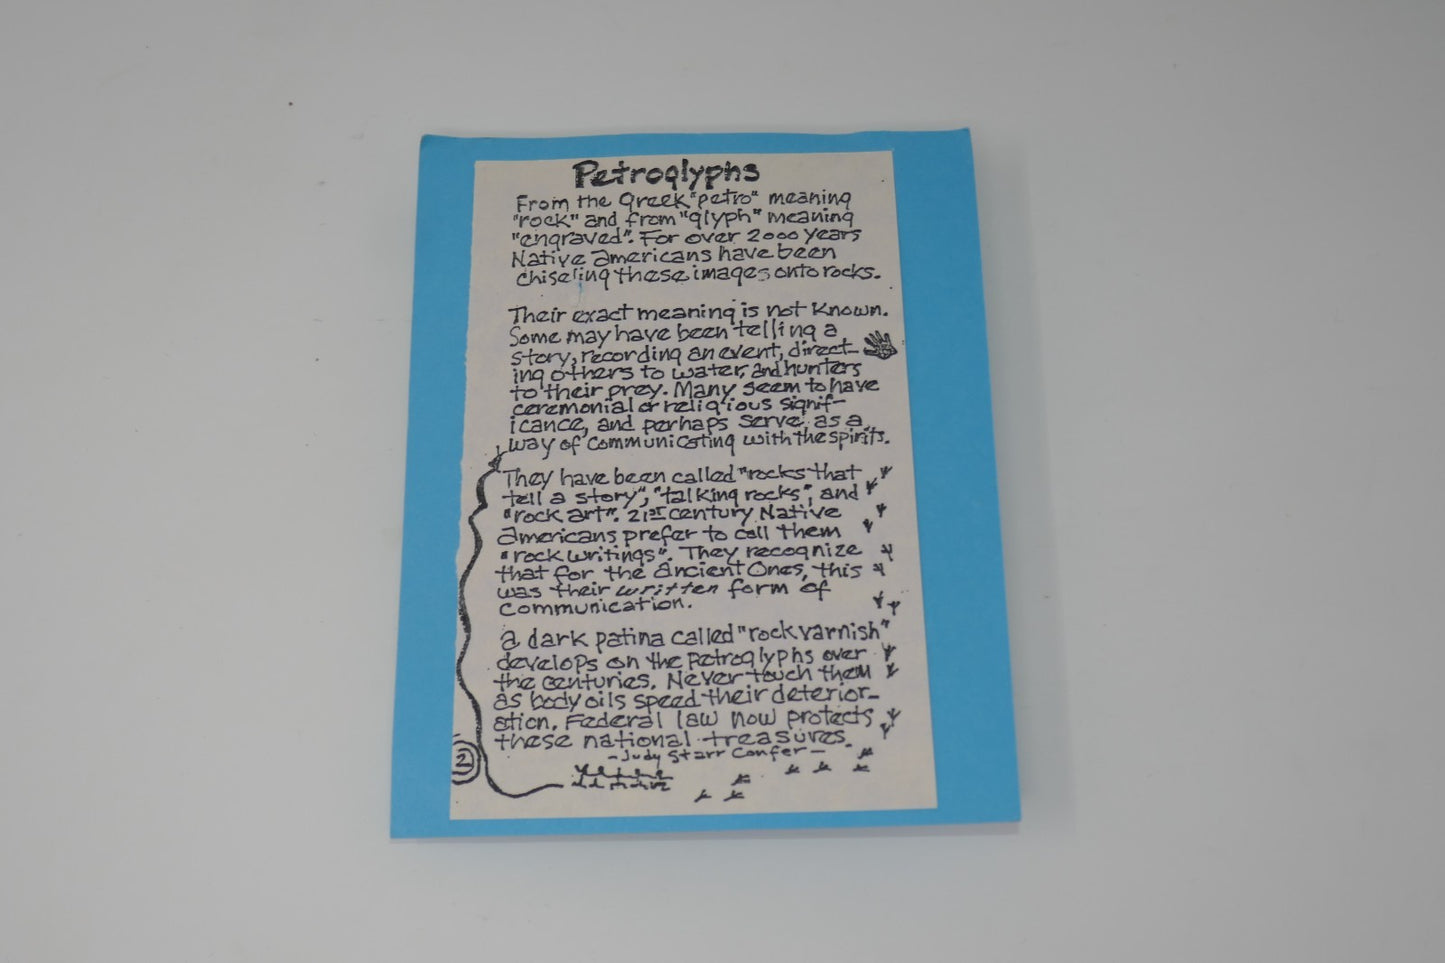 Petroglyphs
From the Greek "petro" meaning
"rock" and from "glyph" meaning
"engraved". For over 2000 years
Native Americans have been
chiseling these images onto rocks.
Their exact meaning is not known.
Some may have been telling a
story, recording an event, direct-
ing others to water, and hunters
to their prey. Many seem to have
ceremonial or religious signif-
icance, and perhaps serve as a
way of communicating with the spirits.
They have been called "rocks that
tell a story", "talking rocks", and
"rock art". 21st century Native
Americans prefer to call them
"rock writings". They recognize
that for the Ancient Ones, this
was their written form of
communication.
A dark patina called "rock varnish"
develops on the petroglyphs over
the centuries. Never touch them
as body oils speed their deterior-
ation. Federal law now protects
these national treasures.
-Judy Starr Confer-
2